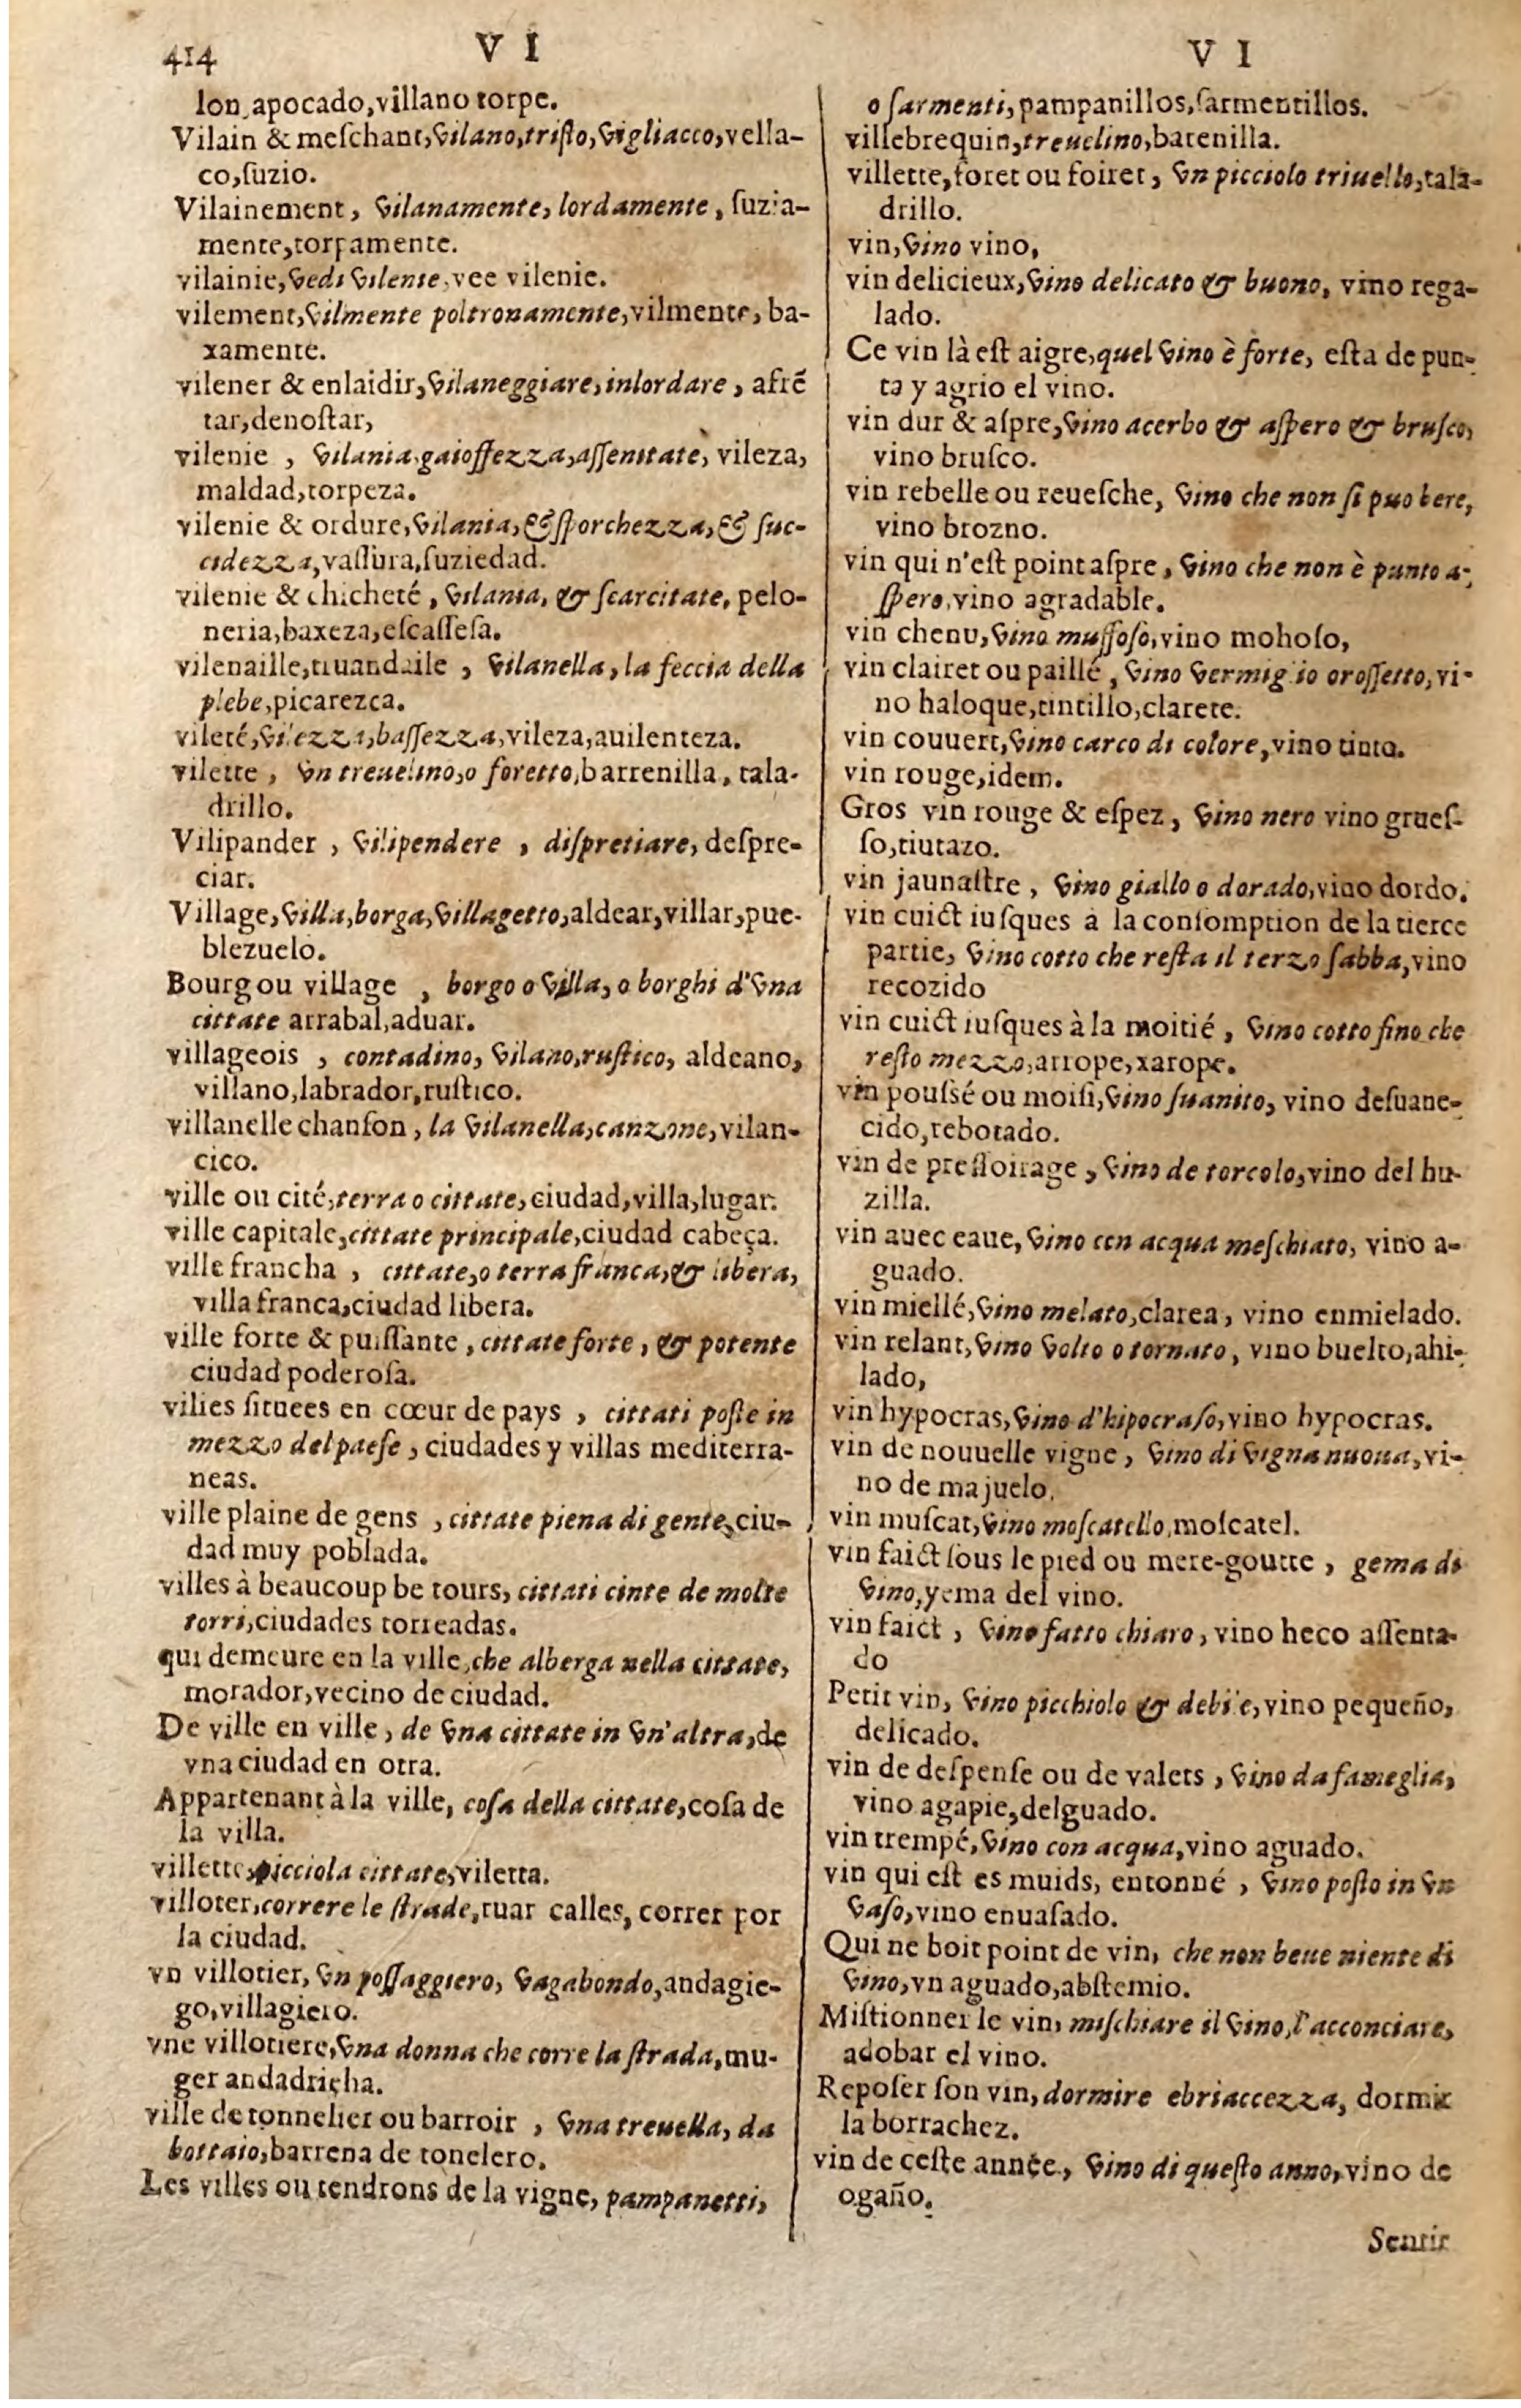 414
V I
lon, apocado, villano torpe.
Vilain & meſchant, vilano, triſto, vigliacco, vella-
co, ſuzio.
Vilainement, vilanamente, lordamente, ſuzia-
mente, torpamente.
vilainie, vedi vilenie, vee vilenie.
vilement, vilmente poltronamente, vilmente, ba-
xamente.
vilener & enlaidir, vilaneggiare, inlordare, afrẽ
tar, denoſtar,
vilenie, vilania, gaioffezza, aſſenitate, vileza,
maldad, torpeza.
vilenie & ordure, vilania, & ſporchezza, & ſuc-
cidezza, vaſſura, ſuziedad.
vilenie & chicheté, vilania, & ſcarcitate, pelo-
neria, baxeza, eſcaſſeſa.
vilenaille, truandaile, vilanella, la feccia della
plebe, picarezca.
vileté, vilezza, baſſezza, vileza, auilenteza.
vilette, vn treuelino, o foretto, barrenilla, tala-
drillo.
Vilipander, vilipendere, diſpretiare, deſpre-
ciar.
Village, villa, borga, villagetto, aldear, villar, pue-
blezuelo.
Bourg ou village, borgo o villa, o borghi d'vna
cittate arrabal, aduar.
villageois, contadino, vilano, ruſtico, aldeano,
villano, labrador, ruſtico.
villanelle chanſon, la vilanella, canzone, vilan-
cico.
ville ou cité, terra o cittate, ciudad, villa, lugar.
ville capitale, cittate principale, ciudad cabeça.
ville francha, cittate, o terra franca, & libera,
villa franca, ciudad libera.
ville forte & puiſſante, cittate forte, & potente
ciudad poderoſa.
villes ſituees en cœur de pays, cittati poſte in
mezzo del paeſe, ciudades y villas mediterra-
neas.
ville plaine de gens, cittate piena di gente, ciu-
dad muy poblada.
villes à beaucoup be tours, cittati cinte de molte
torri, ciudades torreadas.
qui demeure en la ville, che alberga nella cittate,
morador, vecino de ciudad.
De ville en ville, de vna cittate in vn'altra, de
vna ciudad en otra.
Appartenant à la ville, coſa della cittate, coſa de
la villa.
villette, picciola cittate, viletta.
villoter, correre le ſtrade, ruar calles, correr por
la ciudad.
vn villotier, vn poſſaggiero, vagabondo, andagie-
go, villagiero.
vne villotiere, vna donna che corre la ſtrada, mu-
ger andadricha.
ville de tonnelier ou barroir, vna treuella, da
bottaio, barrena de tonelero.
Les villes ou tendrons de la vigne, pampanetti,
V I
o ſarmenti, pampanillos, ſarmentillos.
villebrequin, treuelino, batenilla.
villette, foret ou foiret, vn picciolo triuello, tala-
drillo.
vin, vino vino,
vin delicieux, vino delicato & buono, vino rega-
lado.
Ce vin là eſt aigre, quel vino è forte, eſta de pun-
ta y agrio el vino.
vin dur & aſpre, vino acerbo & aſpero & bruſco,
vino bruſco.
vin rebelle ou reueſche, vino che non ſi puo bere,
vino brozno.
vin qui n'eſt point aſpre, vino che non è punto a-
ſpero, vino agradable.
vin chenu, vino muffoſo, vino mohoſo,
vin clairet ou paillé, vino vermiglio oroſſetto, vi-
no haloque, tintillo, clarete.
vin couuert, vino carco di colore, vino tinto.
vin rouge, idem.
Gros vin rouge & eſpez, vino nero vino grueſ-
ſo, tiutazo.
vin jaunaſtre, vino giallo o dorado, vino dordo.
vin cuict iuſques à la conſomption de la tierce
partie, vino cotto che reſta il terzo ſabba, vino
recozido
vin cuict iuſques à la moitié, vino cotto fino che
reſto mezzo, arrope, xarope.
vin pouſsé ou moiſi, vino ſuanito, vino deſuane-
cido, rebotado.
vin de preſſoirage, vino de torcolo, vino del hu-
zilla.
vin auec eaue, vino con acqua meſchiato, vino a-
guado.
vin miellé, vino melato, clarea, vino enmielado.
vin relant, vino volto o tornato, vino buelto, ahi-
lado,
vin hypocras, vino d'hipocraſo, vino hypocras.
vin de nouuelle vigne, vino di vigna nuoua, vi-
no de majuelo.
vin muſcat, vino moſcatello, moſcatel.
vin faict ſous le pied ou mere-goutte, gema di
vino, yema del vino.
vin faict, vino fatto chiaro, vino heco aſſenta-
do
Petit vin, vino picchiolo & debile, vino pequeño,
delicado.
vin de deſpenſe ou de valets, vino da fameglia,
vino agapie, delguado.
vin trempé, vino con acqua, vino aguado.
vin qui eſt es muids, entonné, vino poſto in vn
vaſo, vino enuaſado.
Qui ne boit point de vin, che non beue niente di
vino, vn aguado, abſtemio.
Miſtionner le vin, miſchiare il vino, l'acconciare,
adobar el vino.
Repoſer ſon vin, dormire ebriaccezza, dormir
la borrachez.
vin de ceſte année, vino di queſto anno, vino de
ogaño.
Sentir